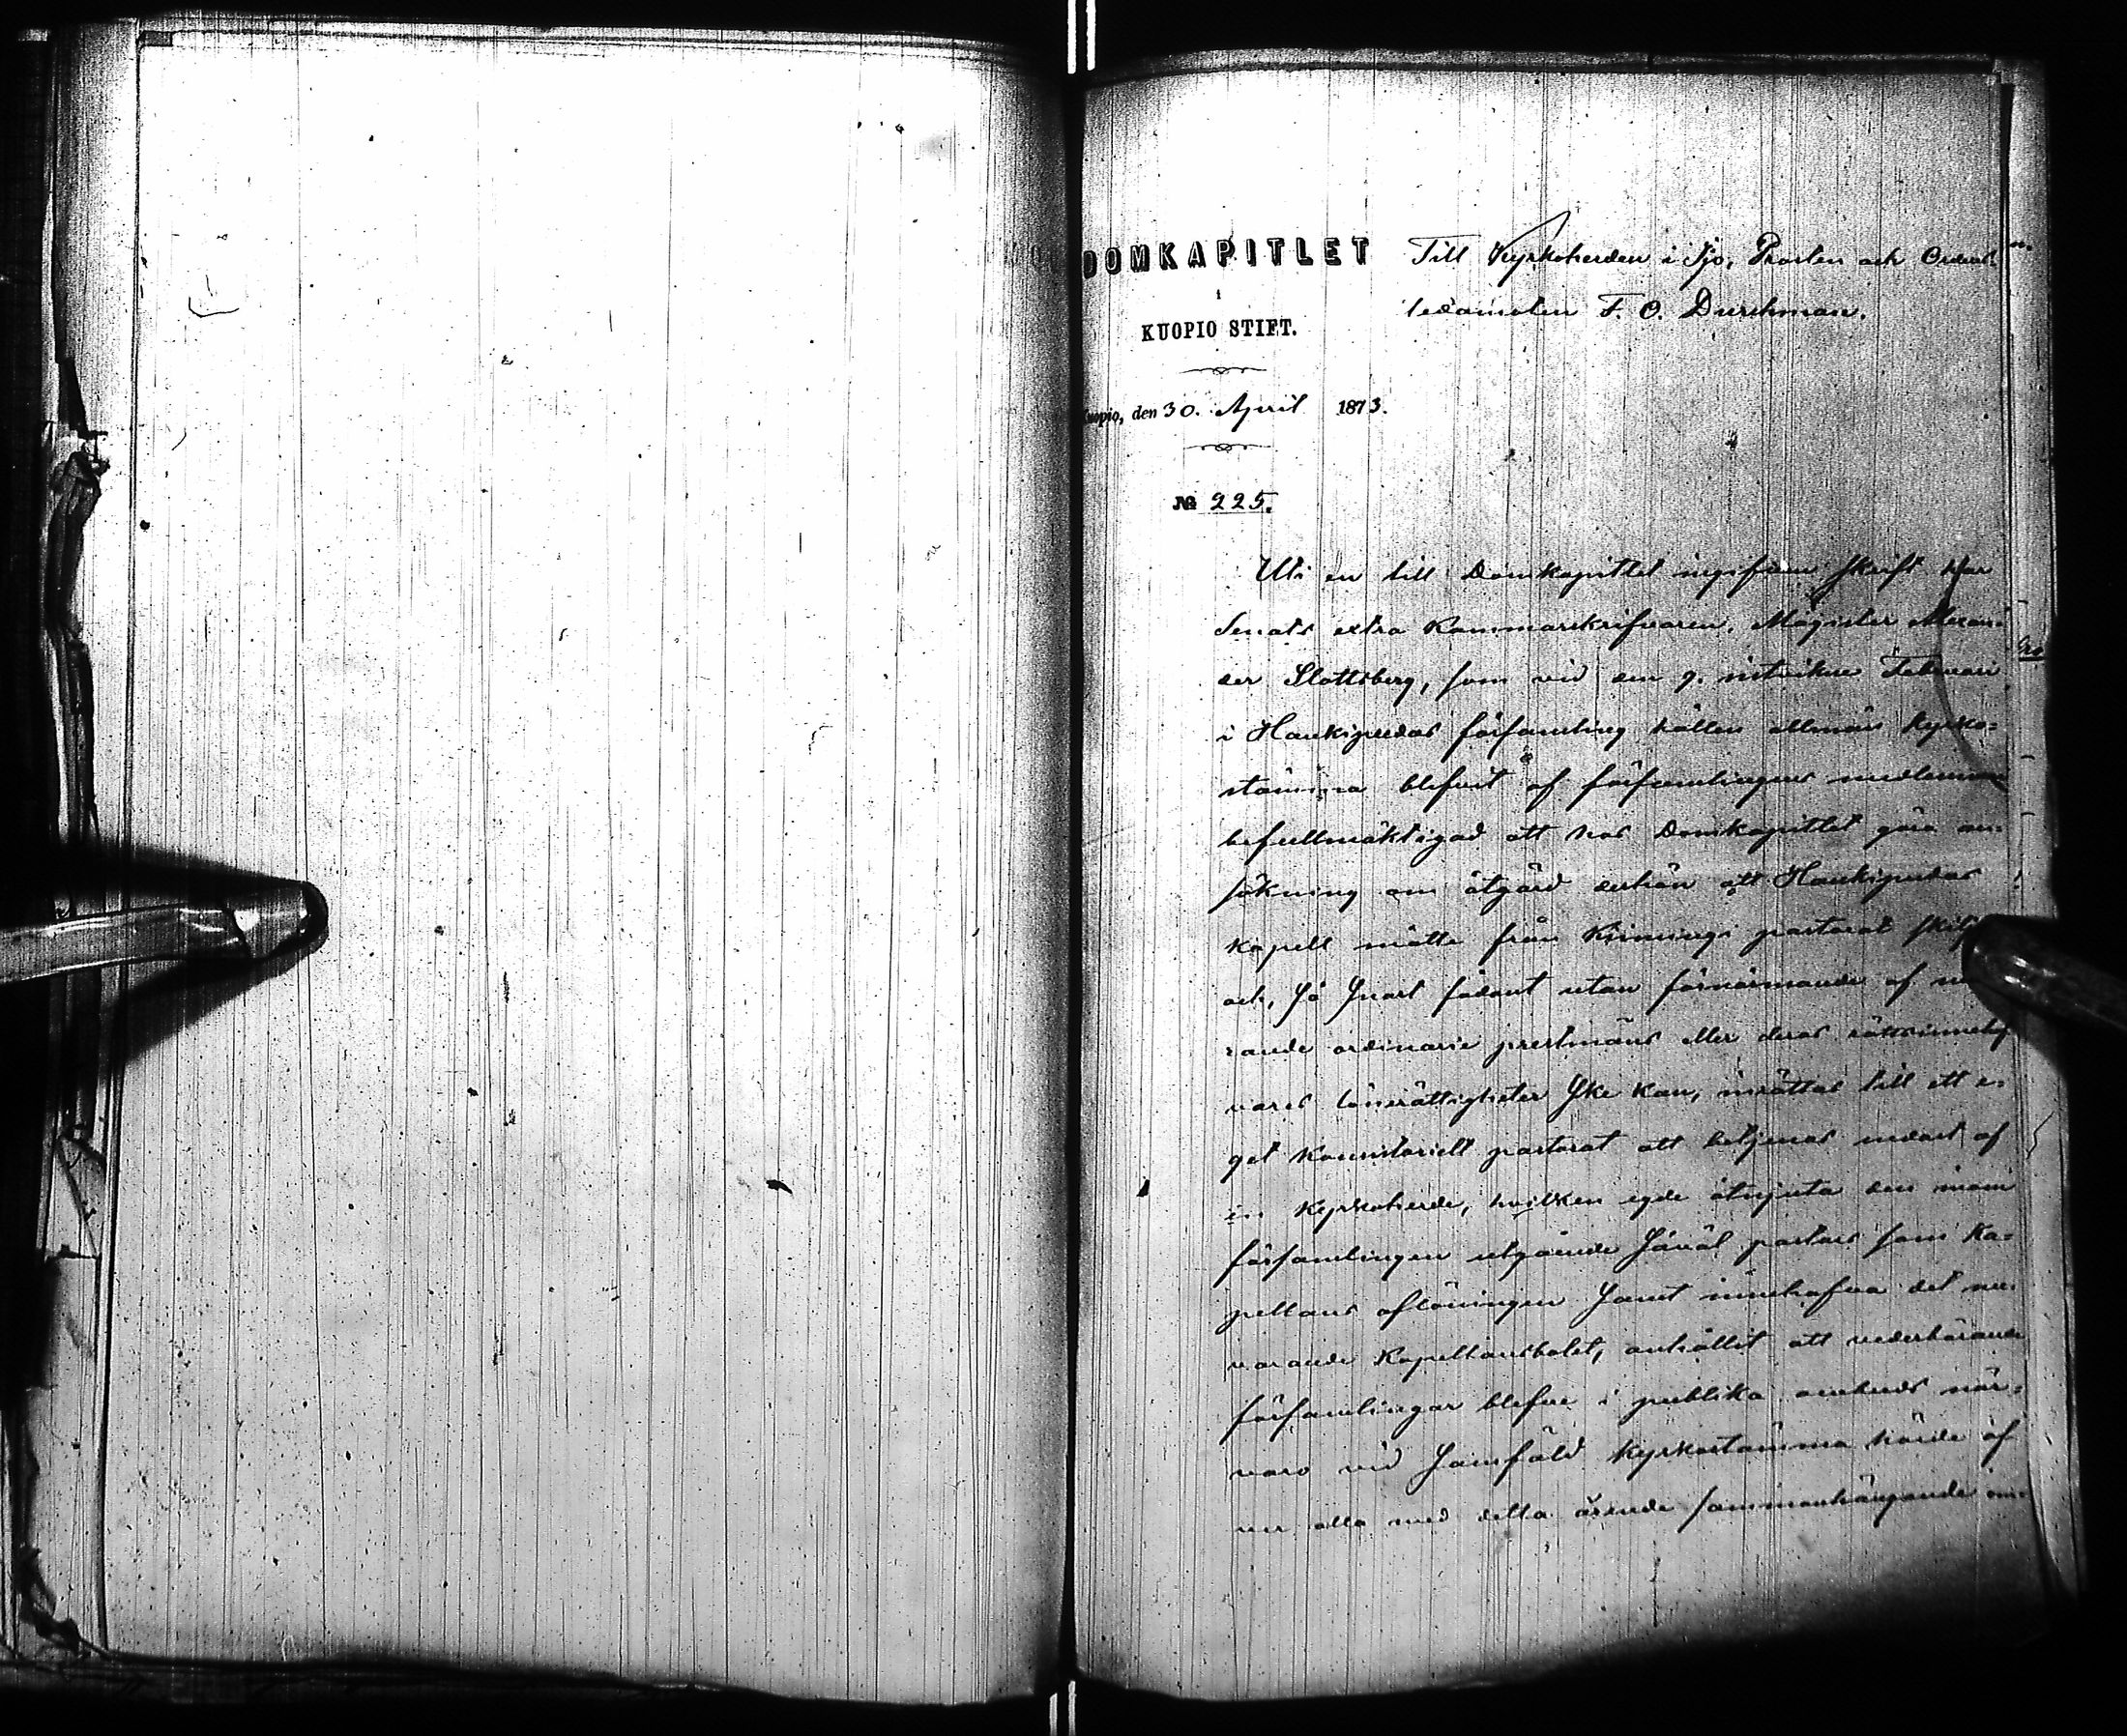 DOMKAPITLET
i
KUOPIO STIFT.
Kuopio, den 30. April 1873.
№ 225.
Till Kyrkoherden i Ijo, Prosten och Ordens-
ledamoten F. O. Durchman.
Uti en till Domkapitlet ingifven skrift har
Senats extra Kammarskrifvaren, Magister Alexan-
der Slottsberg, som vid den 9. Februari
i Haukipudas församling hållen allmän kyrko-
stämma blifvit af församlingens medlemmar
befullmäktigad att hos Domkapitlet göra an-
sökning om åtgärd derhän att Haukipudas
kapell måtte från Kiimingi pastorat
och, så snart sådant utan förnärmande af
rande ordinarie prestmäns eller deras
vares lönerättigheter ske kan, inrättas till ett e-
get konsistorielt pastorat att betjenas endast af
en Kyrkoherde, hvilken egde åtnjuta den inom
församlingen utgående såväl pastors som ka-
pellans aflöningen samt innehafva det nu-
varande Kapellansbolet, anhållit att vederbörande
församlingar blefve i publika ombuds när-
varo vid samfäld Kyrkostämma hörde öf
ver alla med detta ärende sammanhängande om-